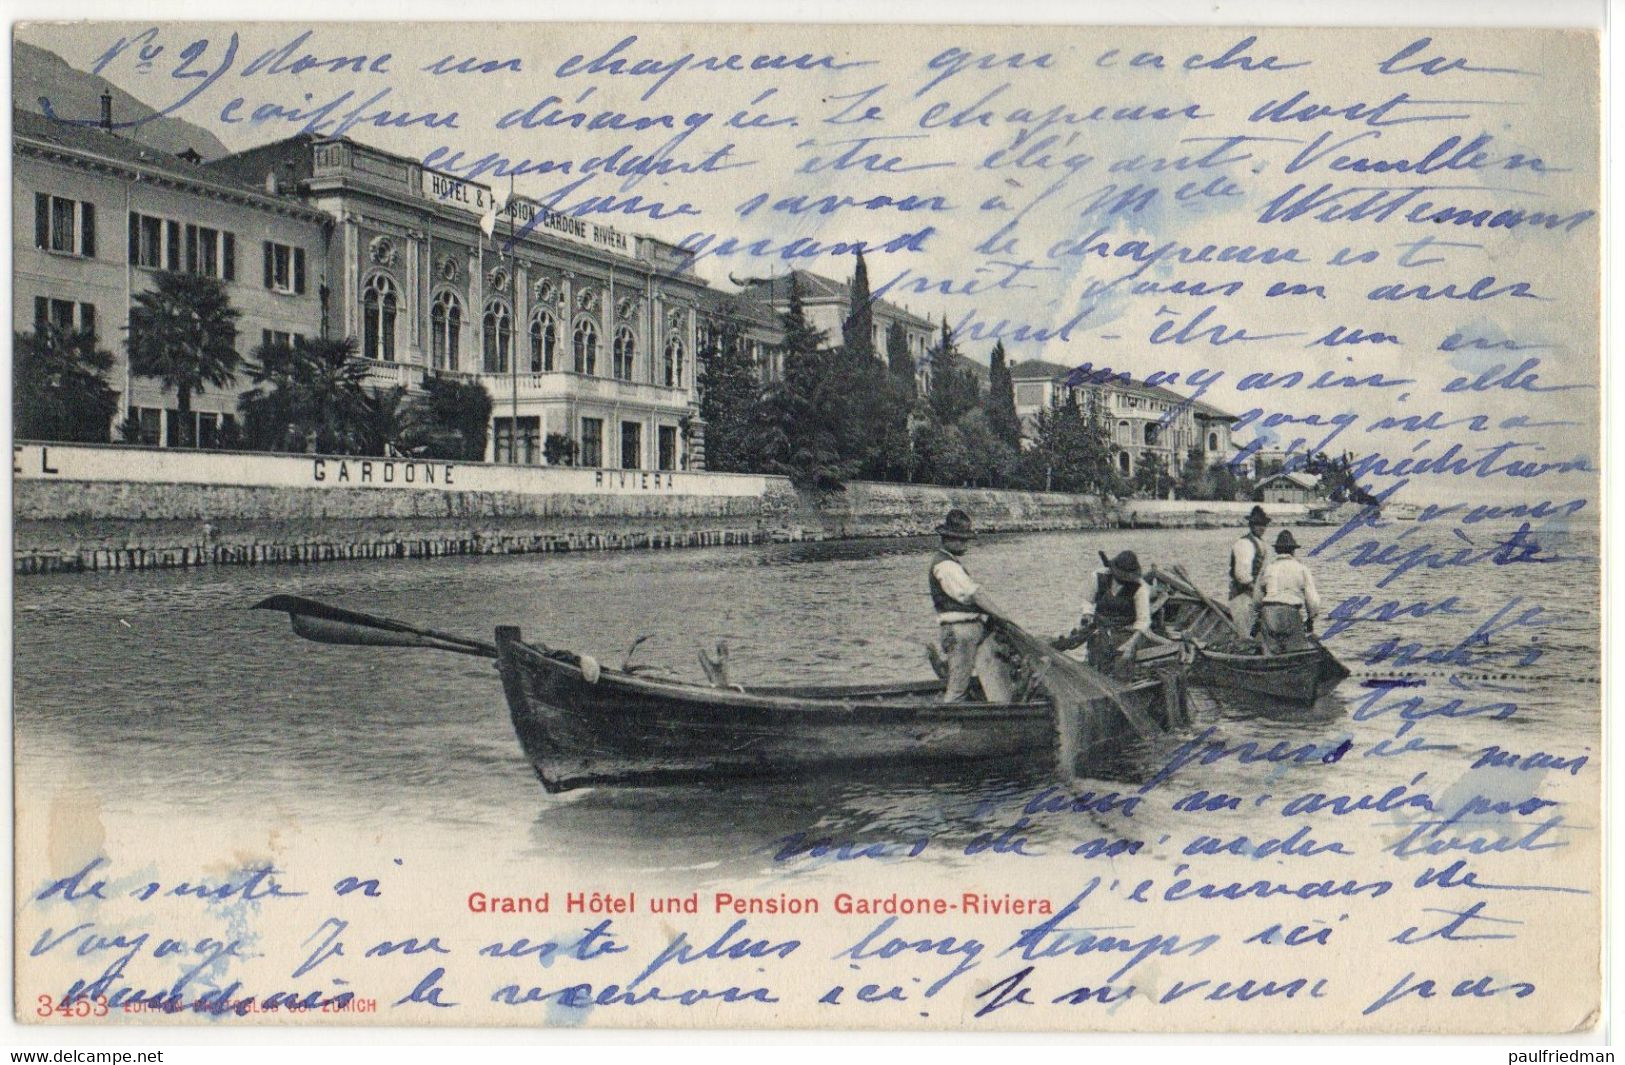 No 2) donc un chapeau qui cache la
coiffure désangée. Le chapeau doit
cependant être élégant. Veuillez
faire savoir à Mde Wittemans
quand le chapeau est
prêt, vous en avez
peut-être un en
magasin, elle
soignera
l'expédition
Je vous
répète
que je
suis
très
pressée mais
vous m'avez pro
mis de m'aider tout
de suite si j'écrivais de
voyage. Je ne reste plus longtemps ici et
voudrais le recevoir ici. Je ne veux pas
HÔTEL & PENSION GARDONE RIVIERA
EL GARDONE RIVIERA
Grand Hôtel und Pension Gardone-Riviera
3453 EDITION PHOTOGLOB CO. ZÜRICH
paulfriedman